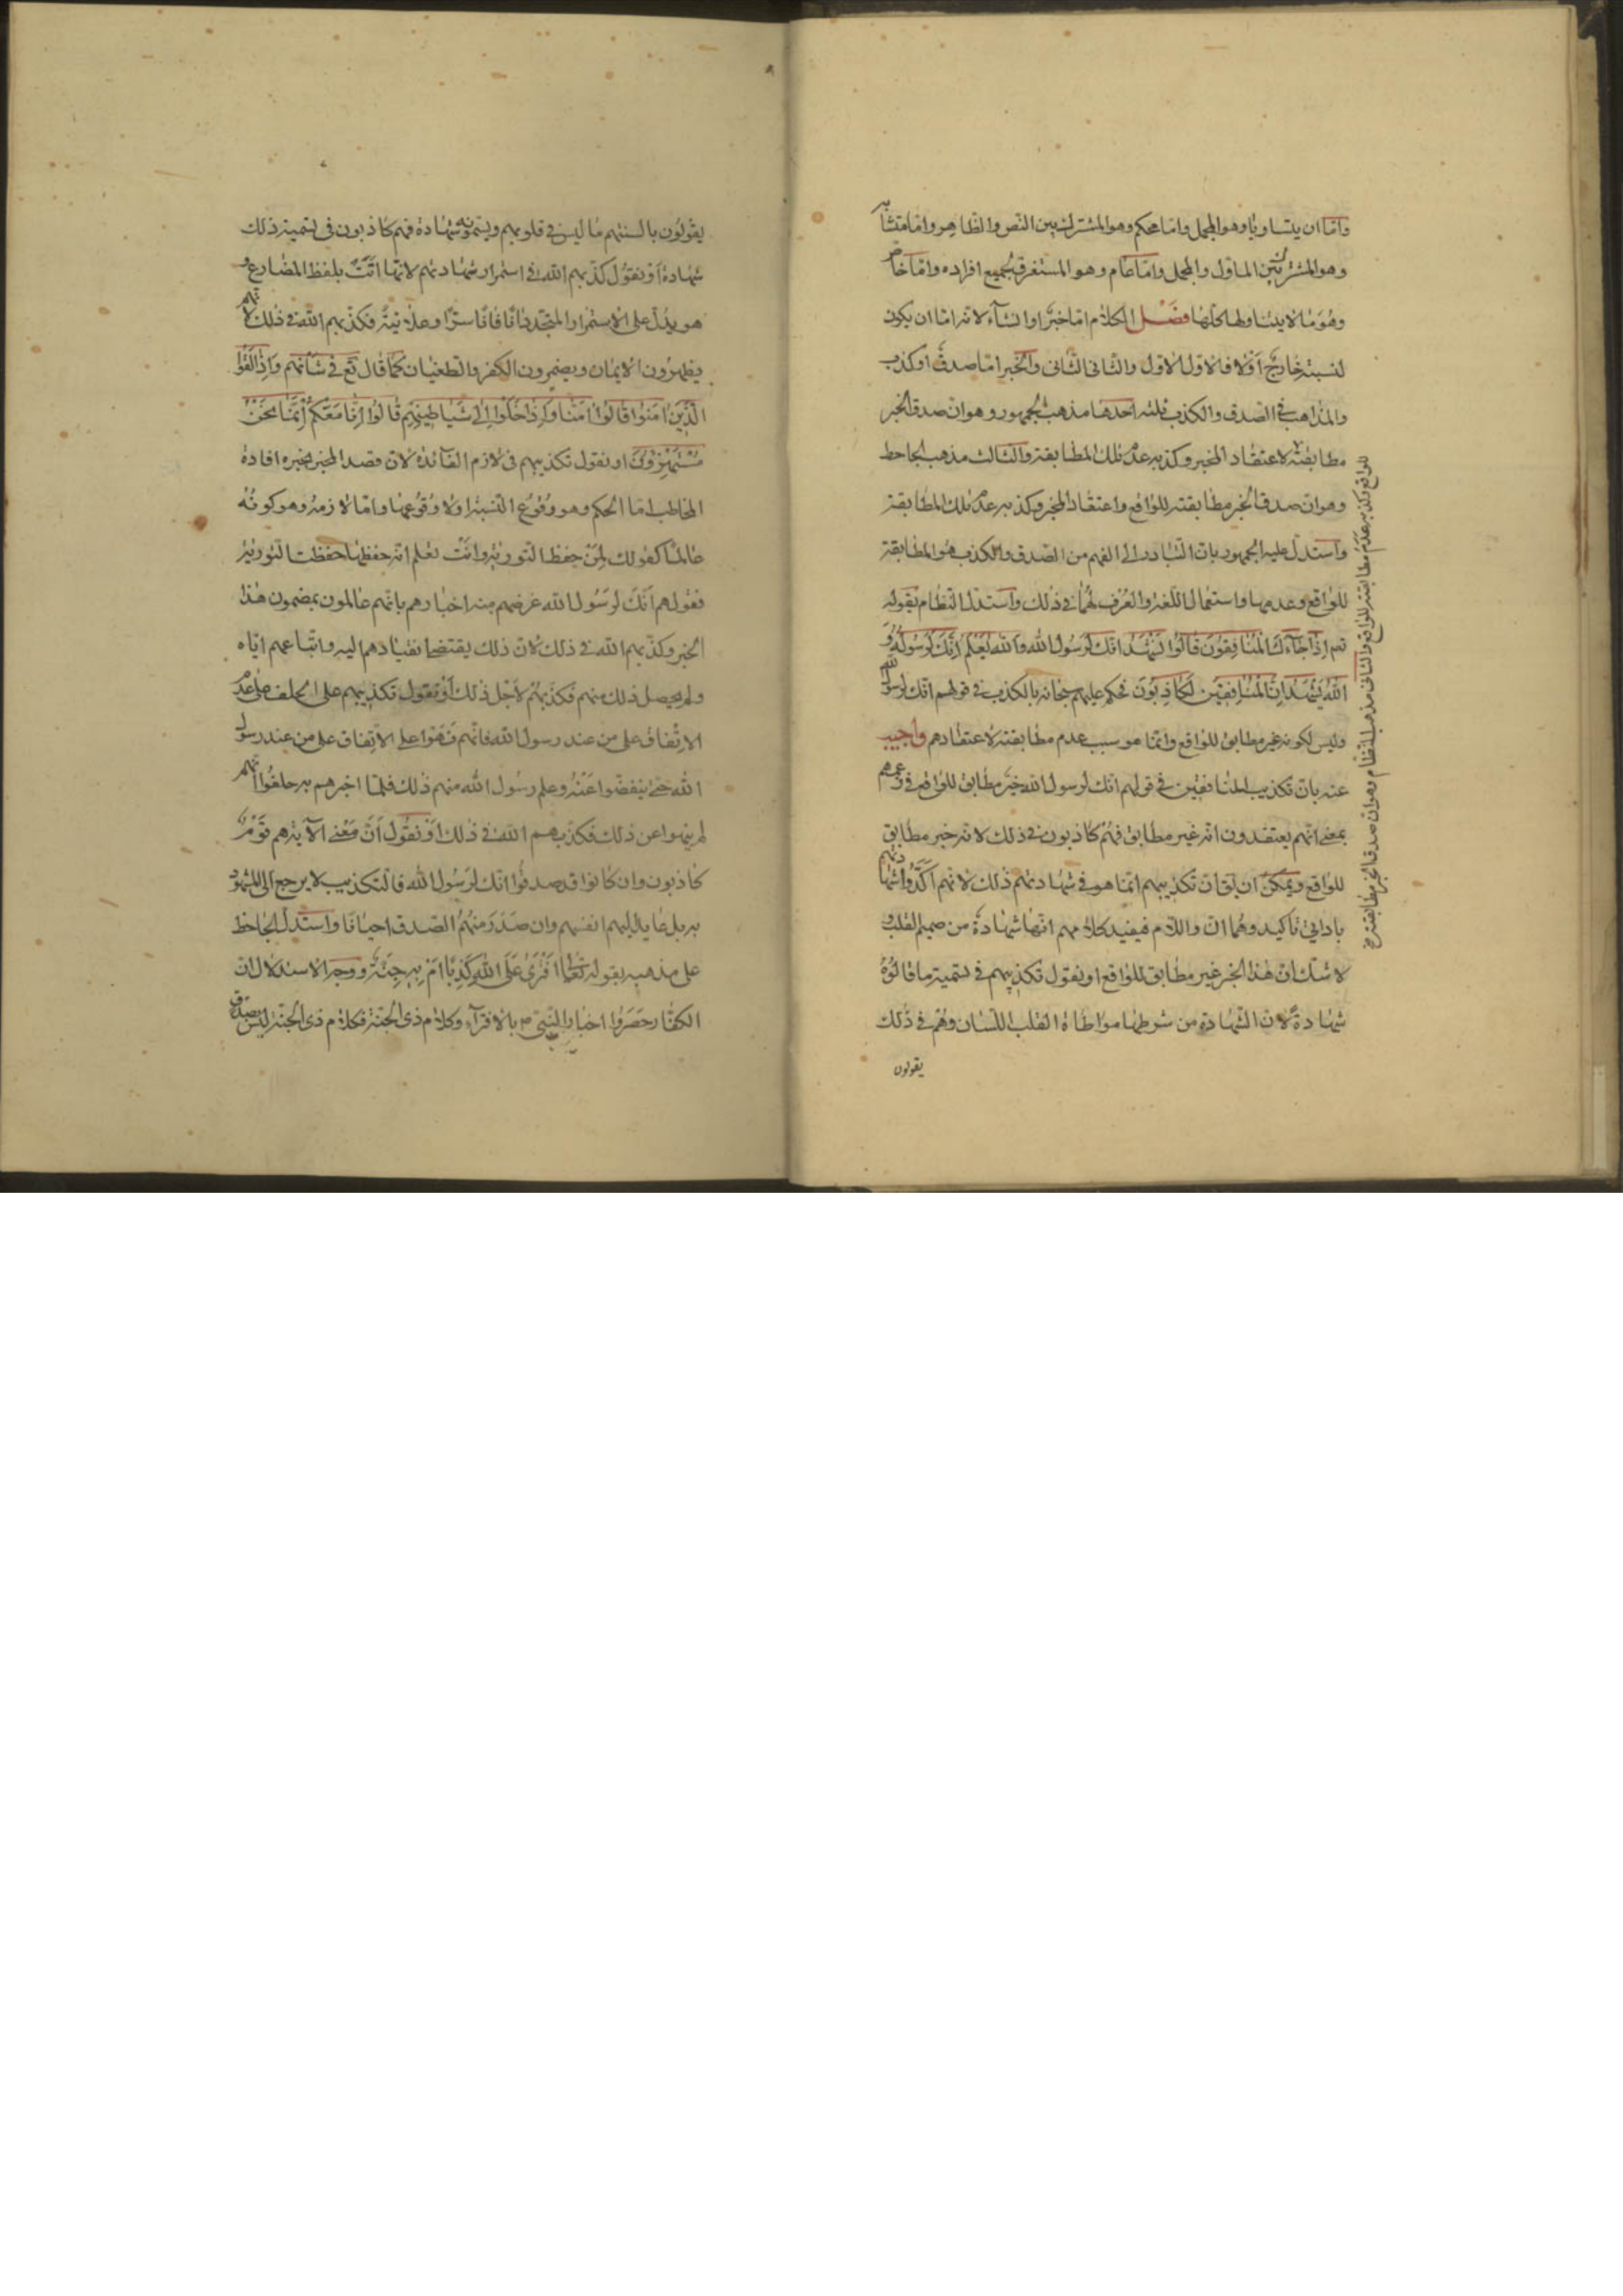 وامّا ان يتساويا وهو المجمل وامّا محكم وهو المشترك بين النّص والظّاهر وامّا متشابه
وهو المشترك بين الماوّل والمجمل وامّا عام وهو المستغرق لجميع افراده وامّا خاص
وهو ما لا يتناولها كلّها فصل الكلام امّا خبر او انشاء لانه امّا ان يكون
لنسبته خارج اوّلا فالاوّل الاوّل والثّاني الثّاني والخبر امّا صدق او كذب
والمذاهب في الصّدق والكذب ثلثة احدها مذهب الجمهور وهو انّ صدق الخبر
مطابقته لاعتقاد المخبر وكذبه عدم تلك المطابقة والثّالث مذهب الجاحظ
وهو انّ صدق الخبر مطابقته للواقع واعتقاد المخبر وكذبه عدم تلك المطابقة
واستدلّ عليه الجمهور بانّ التّبادر الى الفهم من الصّدق والكذب هو المطابقة
للواقع وعدمها واستعمال اللّغة والعرف لهما في ذلك واستدلّ النّظام بقوله
تعم اذا جاءك المنافقون قالوا نشهد انّك لرسول الله والله يعلم انّك لرسوله و
الله يشهد انّ المنافقين لكاذبون فحكم عليهم سبحانه بالكذب في قولهم انّك لرسول الله
وليس لكونه غير مطابق للواقع وانّما هو سبب عدم مطابقته لاعتقادهم واجيب
عنه بانّ تكذيب المنافقين في قولهم انّك لرسول الله خبر مطابق للواقع في زعمهم
بمعنى انّهم يعتقدون انّه غير مطابق فهم كاذبون في ذلك لانه خبر مطابق
للواقع ويمكن ان يق انّ تكذيبهم انّما هو في شهادتهم ذلك لانهم اكّدوا شهادتهم
باداتي تاكيد وهما انّ واللّام فيفيد كلامهم انّها شهادة من صميم القلب و
لا شك انّ هذا الخبر غير مطابق للواقع او نقول تكذيبهم في تسمية ما قالوه
شهادة لانّ الشّهادة من شرطها مواطاة القلب اللّسان وهم في ذلك
يقولون
للواقع وكذبه عدم مطابقته للواقع والثاني مذهب النّظام وهو ان صدق الخبر مطابقته
يقولون بالسنتهم ما ليس في قلوبهم ويسمّونه شهادة فهم كاذبون في تسمية ذلك
شهادة او نقول كذّبهم الله في استمرار شهادتهم لانّها اتت بلفظ المضارع و
هو يدلّ على الاستمرار المتجدّد انّا فانا سرّا وعلانية فكذّبهم الله في ذلك لانّهم
يظهرون الايمان ويضمرون الكفر والطغيان كما قال تع في شانهم واذا لقوا
الّذين امنوا قالوا امنّا واذا خلوا الى شياطينهم قالوا انّا معكم انّما نحن
مستهزؤن او نقول تكذيبهم في لازم الفائدة لانّ قصد المخبر بخبره افادة
المخاطب امّا الحكم وهو وقوع النّسبة او لا وقوعها وامّا لازمه وهو كونه
عالما كقولك لمن حفظ التّورية وانت تعلم انّه حفظها حفظت التّورية
فقولهم انّك لرسول الله غرضهم منه اخبارهم بانّهم عالمون بمضمون هذا
الخبر وكذّبهم الله في ذلك لانّ ذلك يقتضي انقيادهم اليه واتّباعهم ايّاه
ولم يحصل ذلك منهم فكذّبهم لاجل ذلك او نقول تكذيبهم على الحلف على عدم
الانفاق على من عند رسول الله فانّهم نهوا على الانفاق على من عند رسول
الله حتّى ينفضّوا عنه وعلم رسول الله منهم ذلك فلمّا اخبرهم به حلفوا انّهم
لم ينهوا عن ذلك فكذّبهم الله في ذلك او نقول انّ معنى الآية هم قوم
كاذبون وان كانوا قد صدقوا انّك لرسول الله فالتكذيب لا يرجع الى المشهود
به بل عايد اليهم انفسهم وان صدر منهم الصّدق احيانا واستدلّ الجاحظ
على مذهبه بقوله تعالى افترى على الله كذبا ام به جنّة ووجه الاستدلال انّ
الكفّار حصروا اخبار النّبيّ ص بالافتراء وكلام ذي الجنّة فكلام ذي الجنّة ليس بصدق